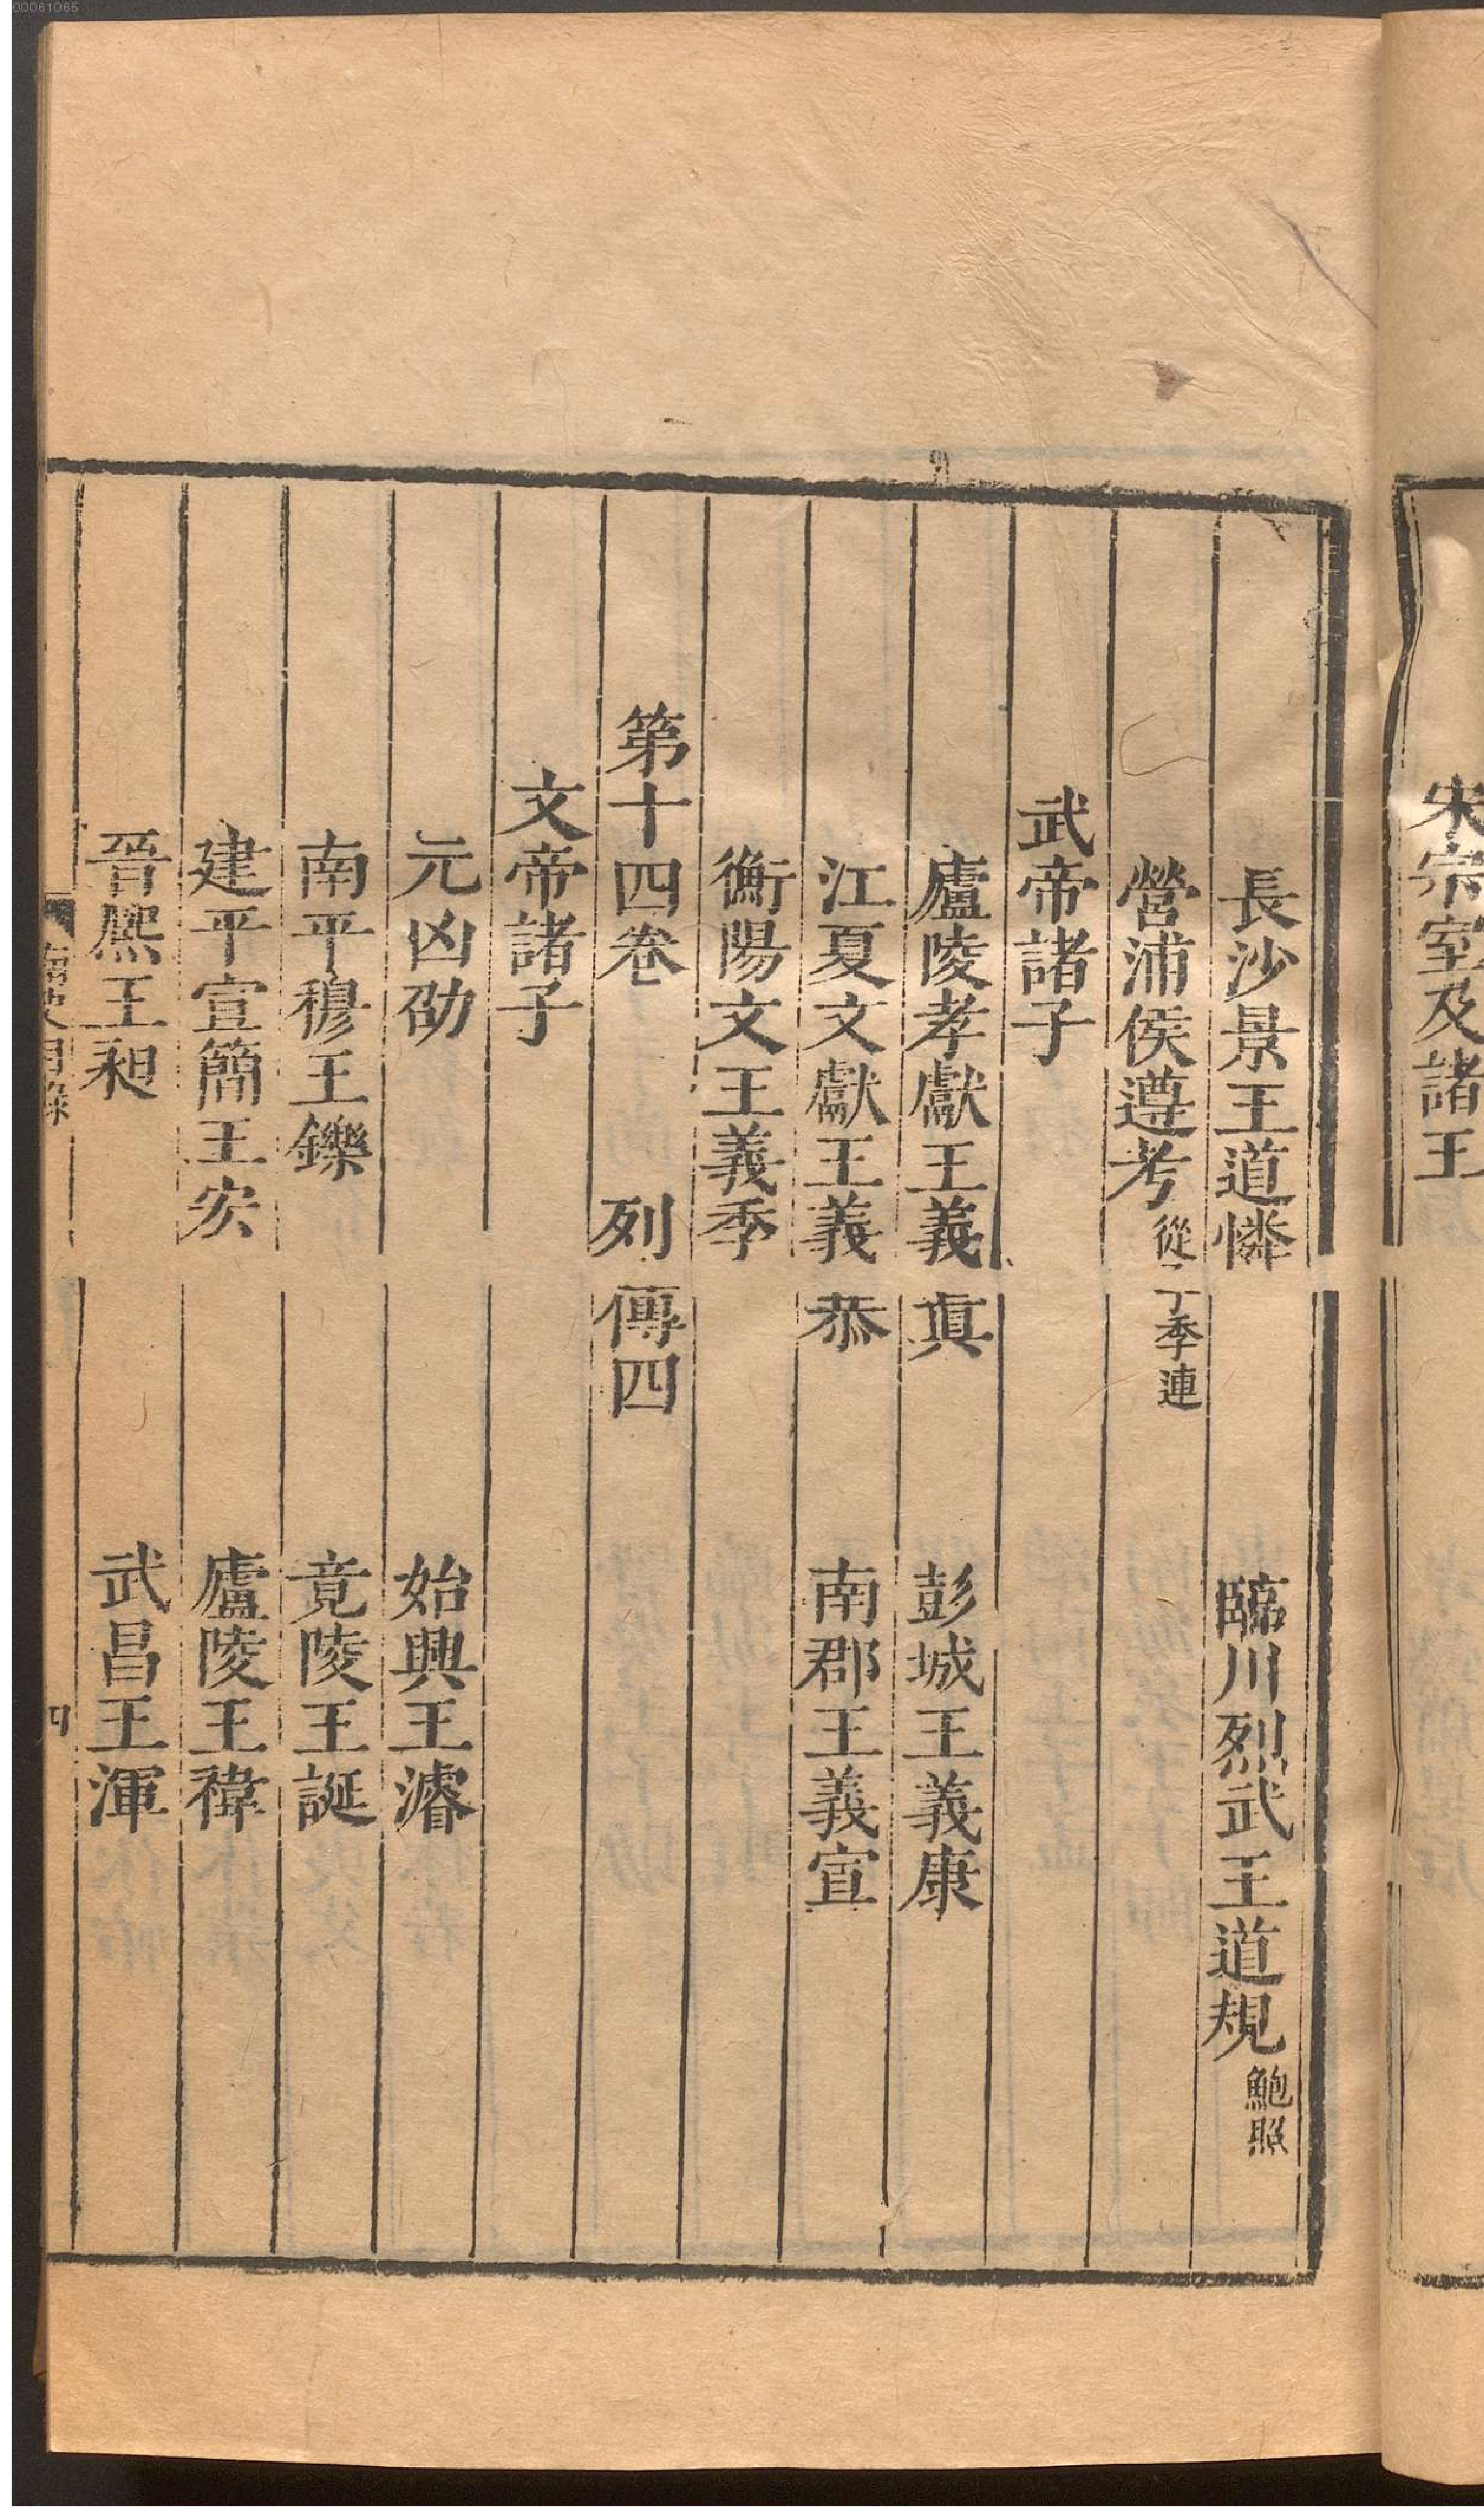 00061065
宋宗室及諸王
長沙景王道憐 臨川烈武王道規 鮑照
營浦侯遵考 從子季連
武帝諸子
廬陵孝獻王義眞 彭城王義康
江夏文獻王義恭 南郡王義宣
衡陽文王義季
第十四卷 列傳四
文帝諸子
元凶劭 始興王濬
南平穆王鑠 竟陵王誕
建平宣簡王宏 廬陵王褘
晉熙王昶 武昌王渾
南史目錄 四